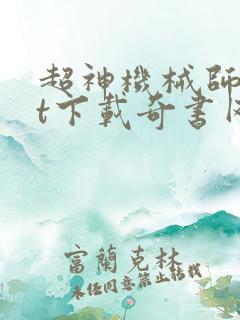 超神機械師
t下載奇書
富蘭克林
未經同意禁止轉載